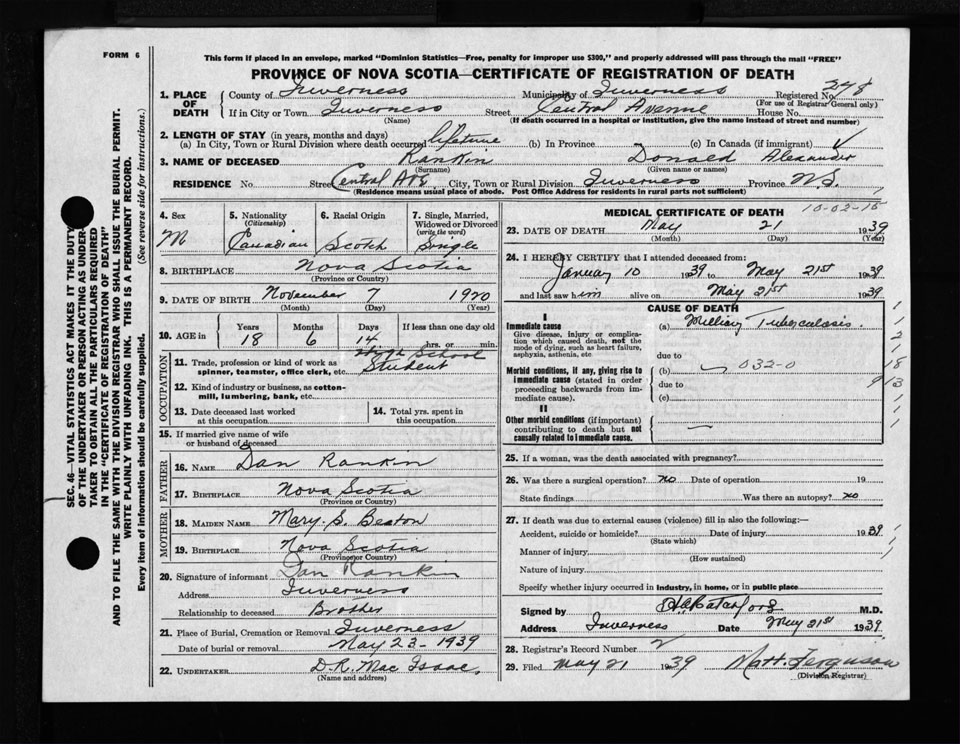 FORM 6
This form if placed in an envelope, marked "Dominion Statistics—Free, penalty for improper use $300," and properly addressed will pass through the mail "FREE"
PROVINCE OF NOVA SCOTIA—CERTIFICATE OF REGISTRATION OF DEATH
248
1. PLACE OF DEATH
County of Inverness Municipality of Inverness Registered No.
(For use of Registrar General only)
If in City or Town Inverness Street Central Avenue House No.
(Name) (If death occurred in a hospital or institution, give the name instead of street and number)
2. LENGTH OF STAY (in years, months and days)
(a) In City, Town or Rural Division where death occurred lifetime (b) In Province (c) In Canada (if immigrant)
3. NAME OF DECEASED Rankin Donald Alexander
(Surname) (Given name or names)
RESIDENCE No Street Central Ave City, Town or Rural Division Inverness Province N.S.
(Residence means usual place of abode. Post Office Address for residents in rural parts not sufficient)
4. Sex
M
5. Nationality
(Citizenship)
Canadian
6. Racial Origin
Scotch
7. Single, Married, Widowed or Divorced
(write the word)
Single
8. BIRTHPLACE Nova Scotia
(Province or Country)
9. DATE OF BIRTH November 7 1920
(Month) (Day) (Year)
10. AGE in
Years Months Days If less than one day old
18 6 14 hrs. or min.
OCCUPATION
11. Trade, profession or kind of work as spinner, teamster, office clerk, etc. High School Student
12. Kind of industry or business, as cotton-mill, lumbering, bank, etc.
13. Date deceased last worked at this occupation
14. Total yrs. spent in this occupation
15. If married give name of wife or husband of deceased
FATHER
16. NAME Dan Rankin
17. BIRTHPLACE Nova Scotia
(Province or Country)
MOTHER
18. MAIDEN NAME Mary S. Beaton
19. BIRTHPLACE Nova Scotia
(Province or Country)
20. Signature of informant Dan Rankin
Address Inverness
Relationship to deceased Brother
21. Place of Burial, Cremation or Removal Inverness
Date of burial or removal May 23 - 1939
22. UNDERTAKER D.R. Mac Isaac,
(Name and address)
MEDICAL CERTIFICATE OF DEATH
10-02-15
23. DATE OF DEATH May 21 1939
(Month) (Day) (Year)
24. I HEREBY CERTIFY that I attended deceased from:
January 10 1939 to May 21st 1939
and last saw him alive on May 21st 1939
CAUSE OF DEATH
I
Immediate cause
Give disease, injury or complication which caused death, not the mode of dying, such as heart failure, asphyxia, asthenia, etc
(a) Milliary Tuberculosis.
due to
Morbid conditions, if any, giving rise to immediate cause (stated in order proceeding backwards from immediate cause).
(b) 032-0
due to
(c)
II
Other morbid conditions (if important) contributing to death but not causally related to immediate cause.
25. If a woman, was the death associated with pregnancy?
26. Was there a surgical operation? no Date of operation 19
State findings Was there an autopsy? no
27. If death was due to external causes (violence) fill in also the following:—
Accident, suicide or homicide? Date of injury 1939
(State which)
Manner of injury
(How sustained)
Nature of injury
Specify whether injury occurred in industry, in home, or in public place
Signed by M.D.
Address Inverness Date May 21st 1939
28. Registrar's Record Number 2
29. Filed May 21 1939 Matt. Ferguson
(Division Registrar)
SEC. 46—VITAL STATISTICS ACT MAKES IT THE DUTY
OF THE UNDERTAKER OR PERSON ACTING AS UNDER-
TAKER TO OBTAIN ALL THE PARTICULARS REQUIRED
IN THE "CERTIFICATE OF REGISTRATION OF DEATH"
AND TO FILE THE SAME WITH THE DIVISION REGISTRAR WHO SHALL ISSUE THE BURIAL PERMIT.
WRITE PLAINLY WITH UNFADING INK. THIS IS A PERMANENT RECORD.
Every item of information should be carefully supplied. (See reverse side for instructions.)